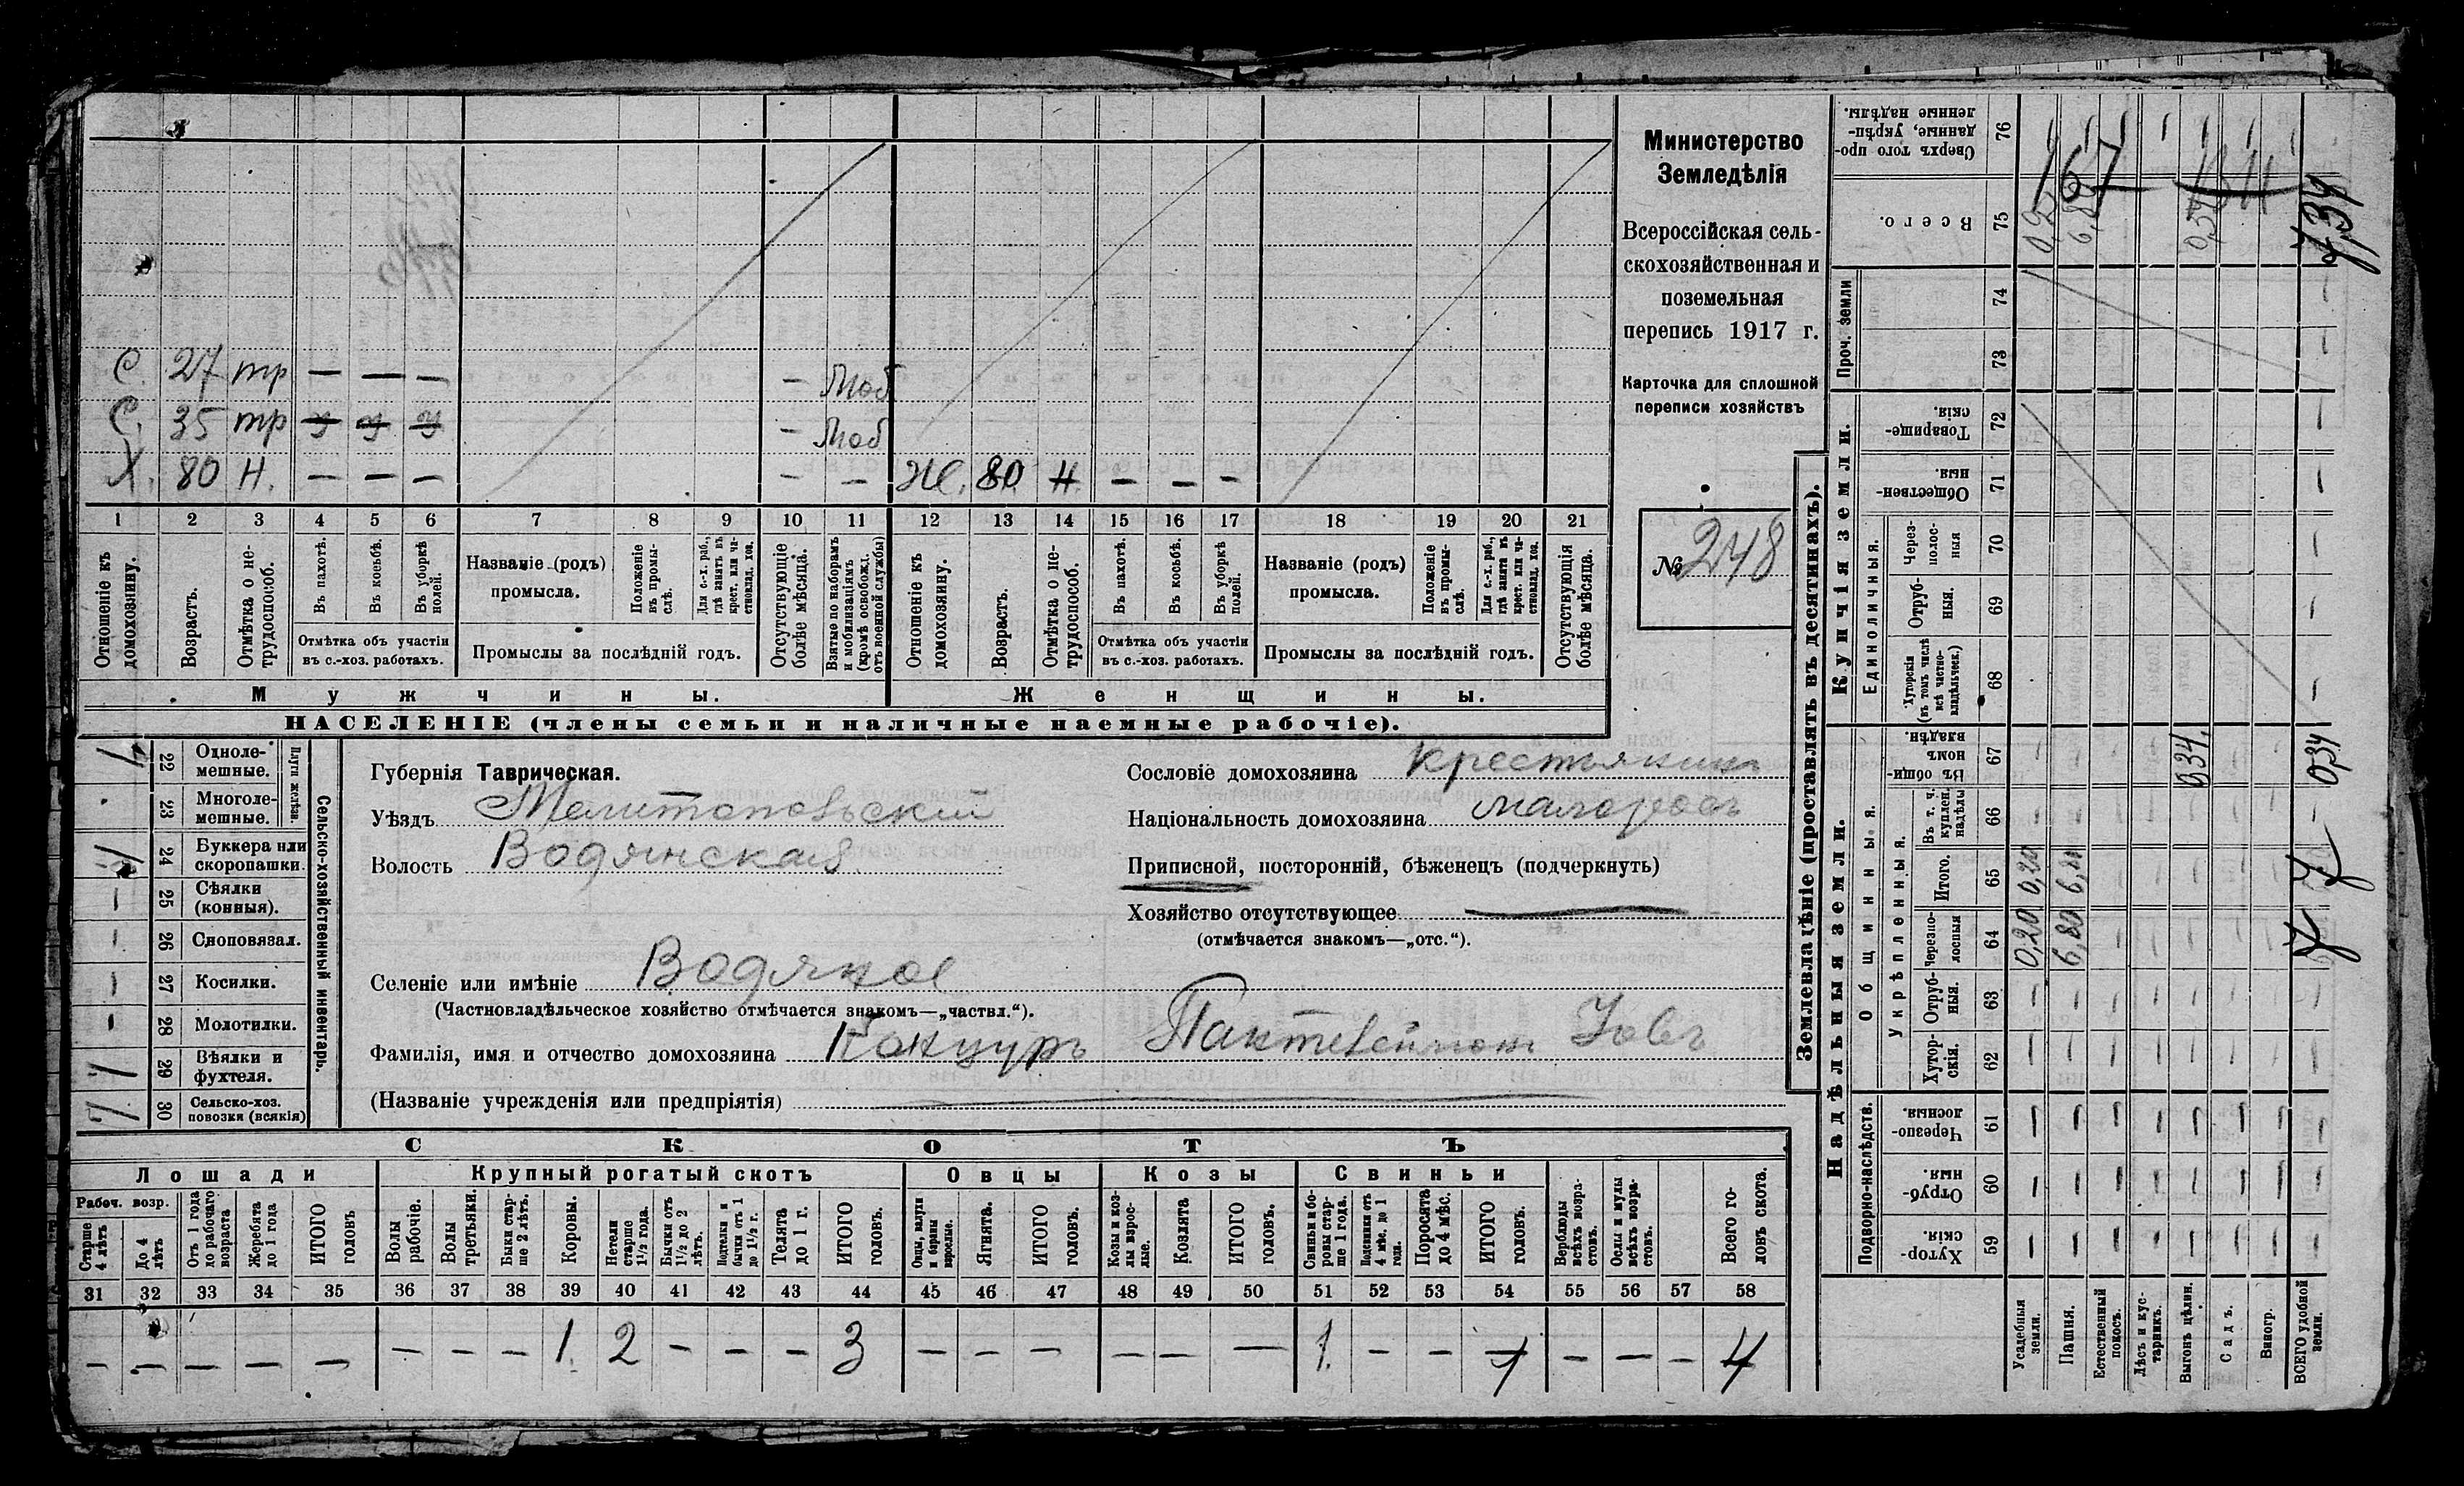 Министерство
Земледѣлія
Всероссійская сель-
скохозяйственная и
поземельная
перепись 1917 г.
Карточка для сплошной
переписи хозяйствъ
№ 248
С. 27 тр — — — — Моб
С. 35 тр — Моб
Х. 80 Н. — — — — — Ж. 80 Н — — —
1 2 3 4 5 6 7 8 9 10 11 12 13 14 15 16 17 18 19 20 21
Отношеніе къ домохозяину.
Возрастъ.
Отмѣтка о не-трудоспособ.
Въ пахотѣ.
Въ косьбѣ.
Въ уборкѣ полей.
Отмѣтка объ участіи
въ с.-хоз. работахъ.
Названіе (родъ)
промысла.
Положеніе въ промы-слѣ.
Для с.-х. раб., гдѣ занятъ въ крест. или ча-стновлад. хоз.
Промыслы за послѣдній годъ.
Отсутствующіе болѣе мѣсяца.
Взятые по наборамъ и мобилизаціямъ (кромѣ освобожд. отъ военной службы)
Отношеніе къ домохозяину.
Возрастъ.
Отмѣтка о не-трудоспособ.
Въ пахотѣ.
Въ косьбѣ.
Въ уборкѣ полей.
Отмѣтка объ участіи
въ с.-хоз. работахъ.
Названіе (родъ)
промысла.
Положеніе въ промы-слѣ.
Для с.-х. раб., гдѣ занята въ крест. или ча-стновлад. хоз.
Промыслы за послѣдній годъ.
Отсутствующія болѣе мѣсяца.
Мужчины. Женщины.
НАСЕЛЕНІЕ (члены семьи и наличные наемные рабочіе).
Сельско-хозяйственный инвентарь.
Плуги желѣзн.
22 Одноле-мешные.
23 Многоле-мешные.
24 Буккера или скоропашки.
25 Сѣялки (конныя).
26 Сноповязал.
27 Косилки.
28 Молотилки.
29 Вѣялки и фухтеля.
30 Сельско-хоз. повозки (всякія)
Губернія Таврическая.
Уѣздъ Мелитопольскій
Волость Водянская
Сословіе домохозяина крестьянинъ
Національность домохозяина малороссъ
Приписной, посторонній, бѣженецъ (подчеркнуть)
Хозяйство отсутствующее
(отмѣчается знакомъ—„отс.“).
Селеніе или имѣніе Водяное
(Частновладѣльческое хозяйство отмѣчается знакомъ—„частвл.“).
Фамилія, имя и отчество домохозяина Концуръ Пантелеймонъ Іовъ
(Названіе учрежденія или предпріятія)
СКОТЪ
Лошади Крупный рогатый скотъ Овцы Козы Свиньи
Рабоч. возр.
Старше 4 лѣтъ
До 4 лѣтъ
Отъ 1 года до рабочаго возраста
Жеребята до 1 года
ИТОГО головъ
Волы рабочіе.
Волы третьяки.
Быки стар-ше 2 лѣтъ.
Коровы.
Нетели старше 1½ года.
Бычки отъ 1½ до 2 лѣтъ.
Подтелки и бычки отъ 1 до 1½ г.
Телята до 1 г.
ИТОГО головъ.
Овцы, валухи и бараны взрослые.
Ягнята.
ИТОГО головъ.
Козы и коз-лы взрос-лые.
Козлята
ИТОГО головъ.
Свиньи и бо-ровы стар-ше 1 года.
Подсвинки отъ 4 мѣс. до 1 года.
Поросята до 4 мѣс.
ИТОГО головъ.
Верблюды всѣхъ возра-стовъ.
Ослы и мулы всѣхъ возра-стовъ.
Всего го-ловъ скота.
31 32 33 34 35 36 37 38 39 40 41 42 43 44 45 46 47 48 49 50 51 52 53 54 55 56 57 58
— — — — — — — — 1. 2 — — — 3 — — — — — — 1. — — 1 — — — 4
Землевладѣніе (проставлять въ десятинахъ).
Надѣльныя земли. Купчія земли. Проч. земли
Подворно-наслѣдств. Общинныя. Укрѣпленныя. Единоличныя.
Сверхъ того про-данные, укрѣп-ленные надѣлы. 76
Всего. 75 0,20 6,80 0,34 7,34
74
73
Товарище-скія. 72
Обществен-ныя 71
Через-полос-ныя 70
Отруб-ныя. 69
Хуторскія (въ томъ числѣ всѣ частно-владѣльческ.) 68
Въ общин-номъ владѣн. 67 0,34. 0,34
Въ т. ч. куплен. надѣлы 66
Итого. 65 0,20 6,80 7
Черезпо-лосныя 64 0,20 6,80 7
Отруб-ныя. 63
Хутор-скія. 62
Черезпо-лосныя. 61
Отруб-ныя. 60
Хутор-скія. 59
Усадебныя земли.
Пашня.
Естественный покосъ.
Лѣсъ и кус-тарникъ.
Выгонъ цѣлин.
Садъ.
Виногр.
ВСЕГО удобной земли.